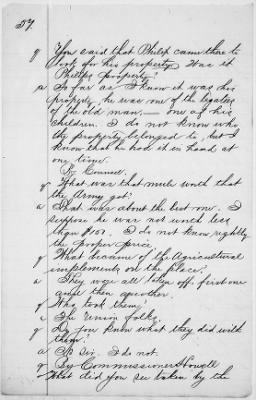 57.
q You said that Philip came there to
look for his property. Was it
Philips property?
a So far as I know it was his
property, he was one of the legatees
of the old man, — one of his
children. I do not know who
the property belonged to, but I
know that he had it in hand at
one time.
By Counsel.
q What was that mule worth that
the Army got?
a That was about the best one. I
suppose he was not worth less
than $150. I do not know rightly
the proper price
q What became of the Agricultural
implements on the place?
a They were all taken off, first one
and then another.
q Who took them?
a The Union folks.
q Do you know what they did with
them?
a No sir, I do not.
q By Commissioner Howell
What did you see taken by the